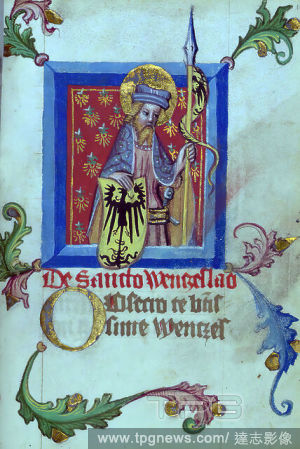 De Sancto Wentzeslao
Obsecro te bea
sime Wentzes
TPG
www.tpgnews.com/達志影像